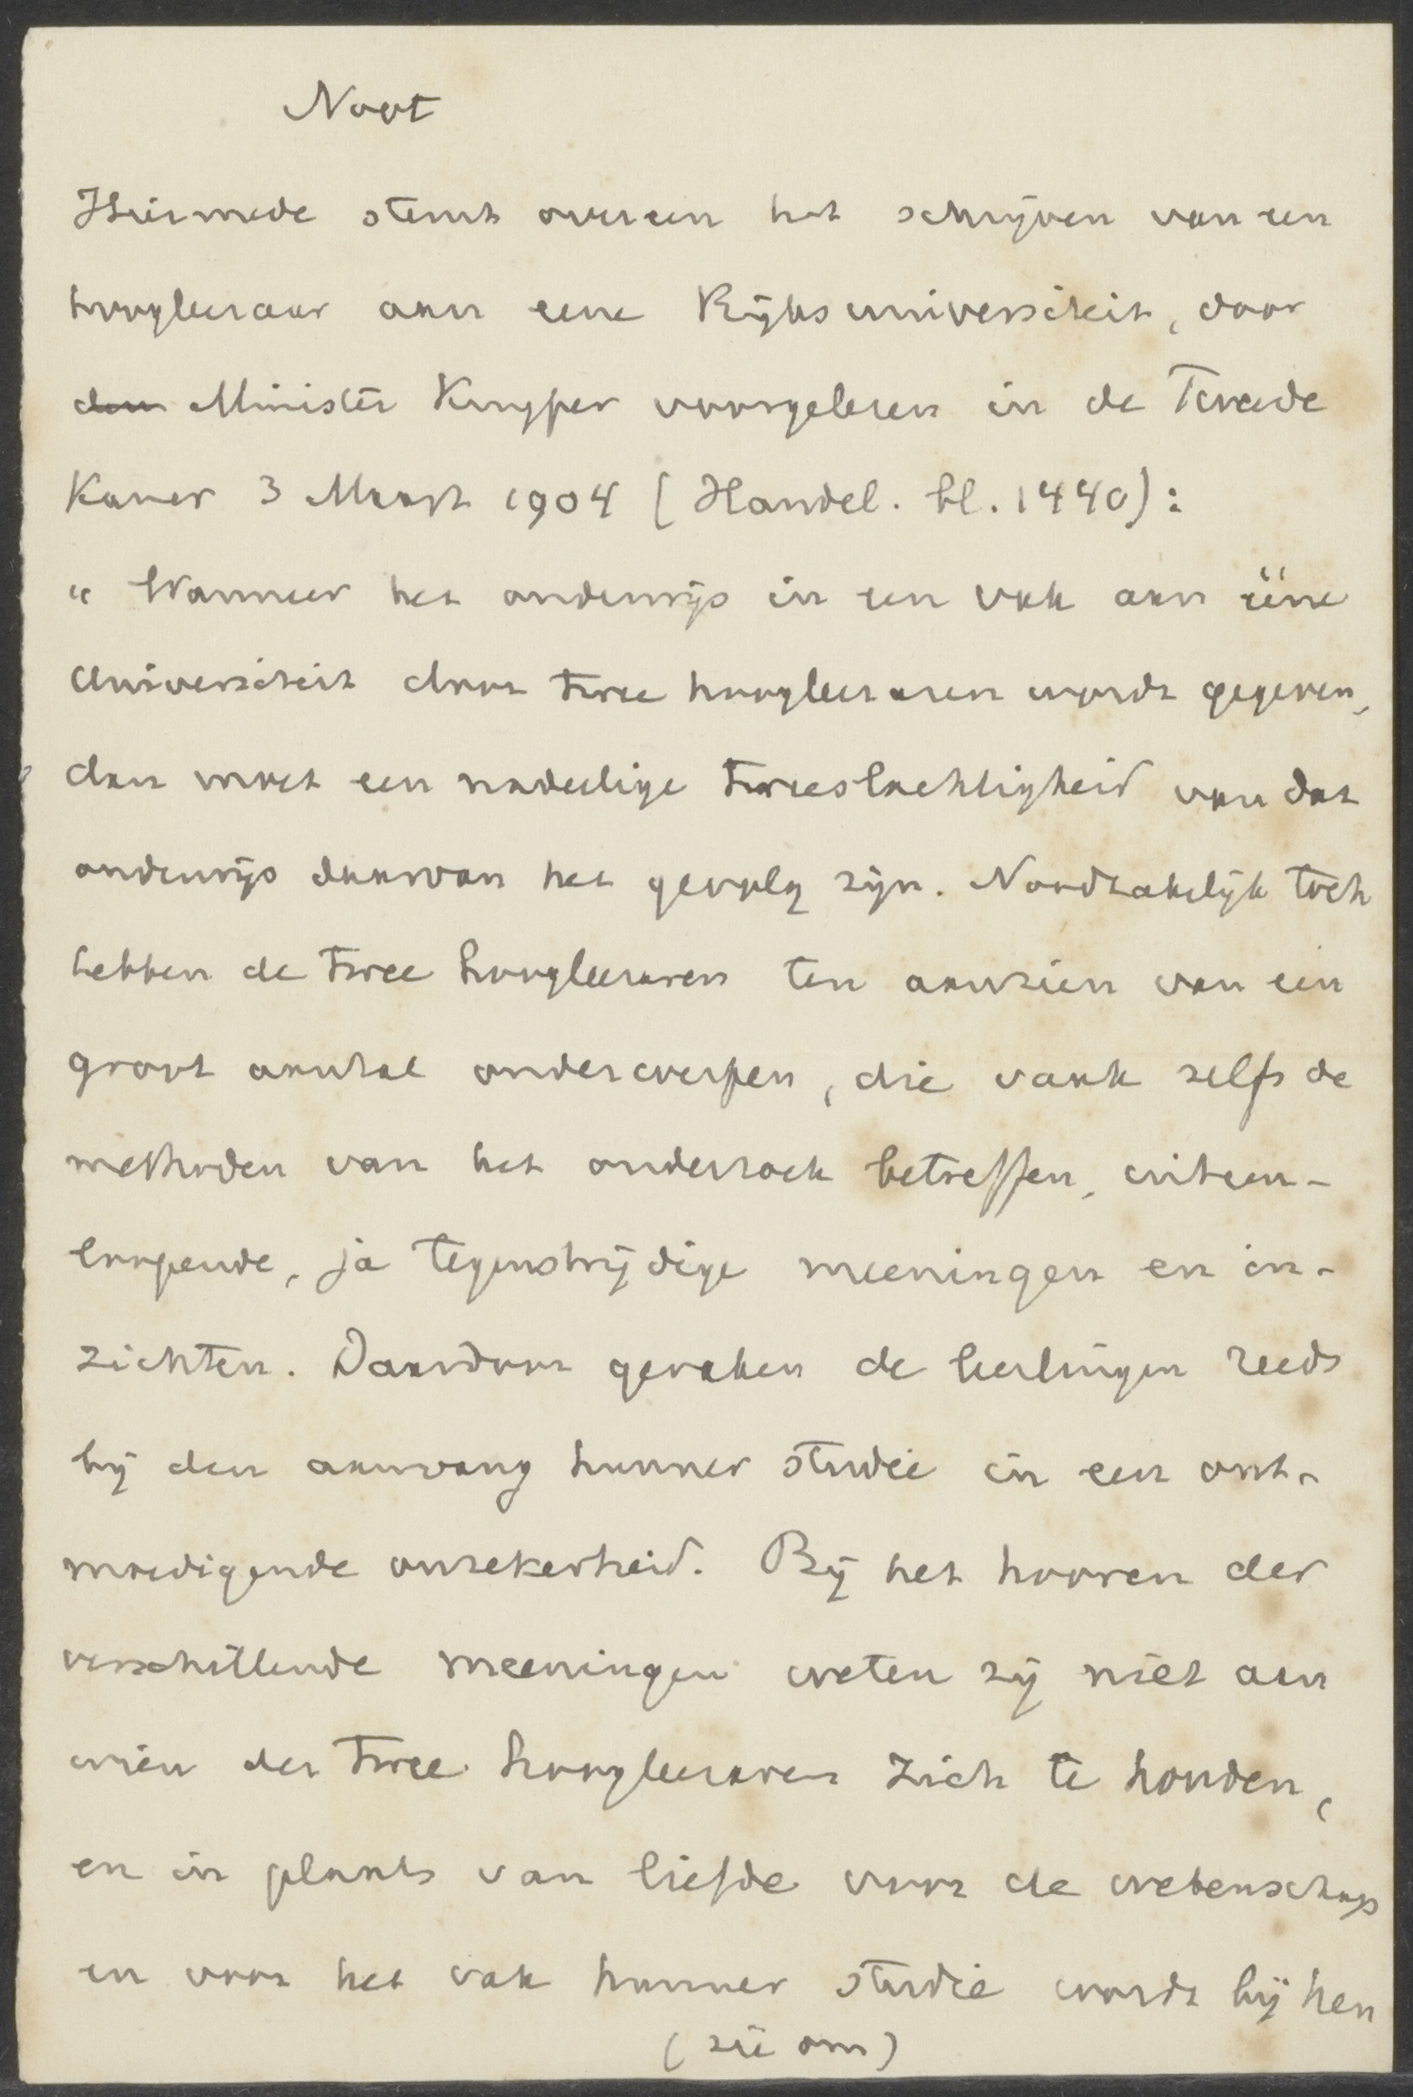 Noot
Hiermede stemt overeen het schrijven van een
hoogleeraar aan eene Rijksuniversiteit, door
den Minister Kuyper voorgelezen in de Tweede
Kamer 3 Maart 1904 (Handel. bl. 1440):
"Wanneer het onderwijs in een vak aan ééne
Universiteit door twee hoogleeraren wordt gegeven,
dan moet een nadeelige tweeslachtigheid van dat
onderwijs daarvan het gevolg zijn. Noodzakelijk toch
hebben de twee hoogleeraren ten aanzien van een
groot aantal onderwerpen, die vaak zelfs de
methoden van het onderzoek betreffen, uiteen-
loopende, ja tegenstrijdige meeningen en in-
zichten. Daardoor geraken de leerlingen reeds
bij den aanvang hunner studie in een ont-
moedigende onzekerheid. Bij het hooren der
verschillende meeningen weten zij niet aan
wien der twee hoogleeraren zich te houden,
en in plaats van liefde voor de wetenschap
en voor het vak hunner studie wordt bij hen
(zie om)